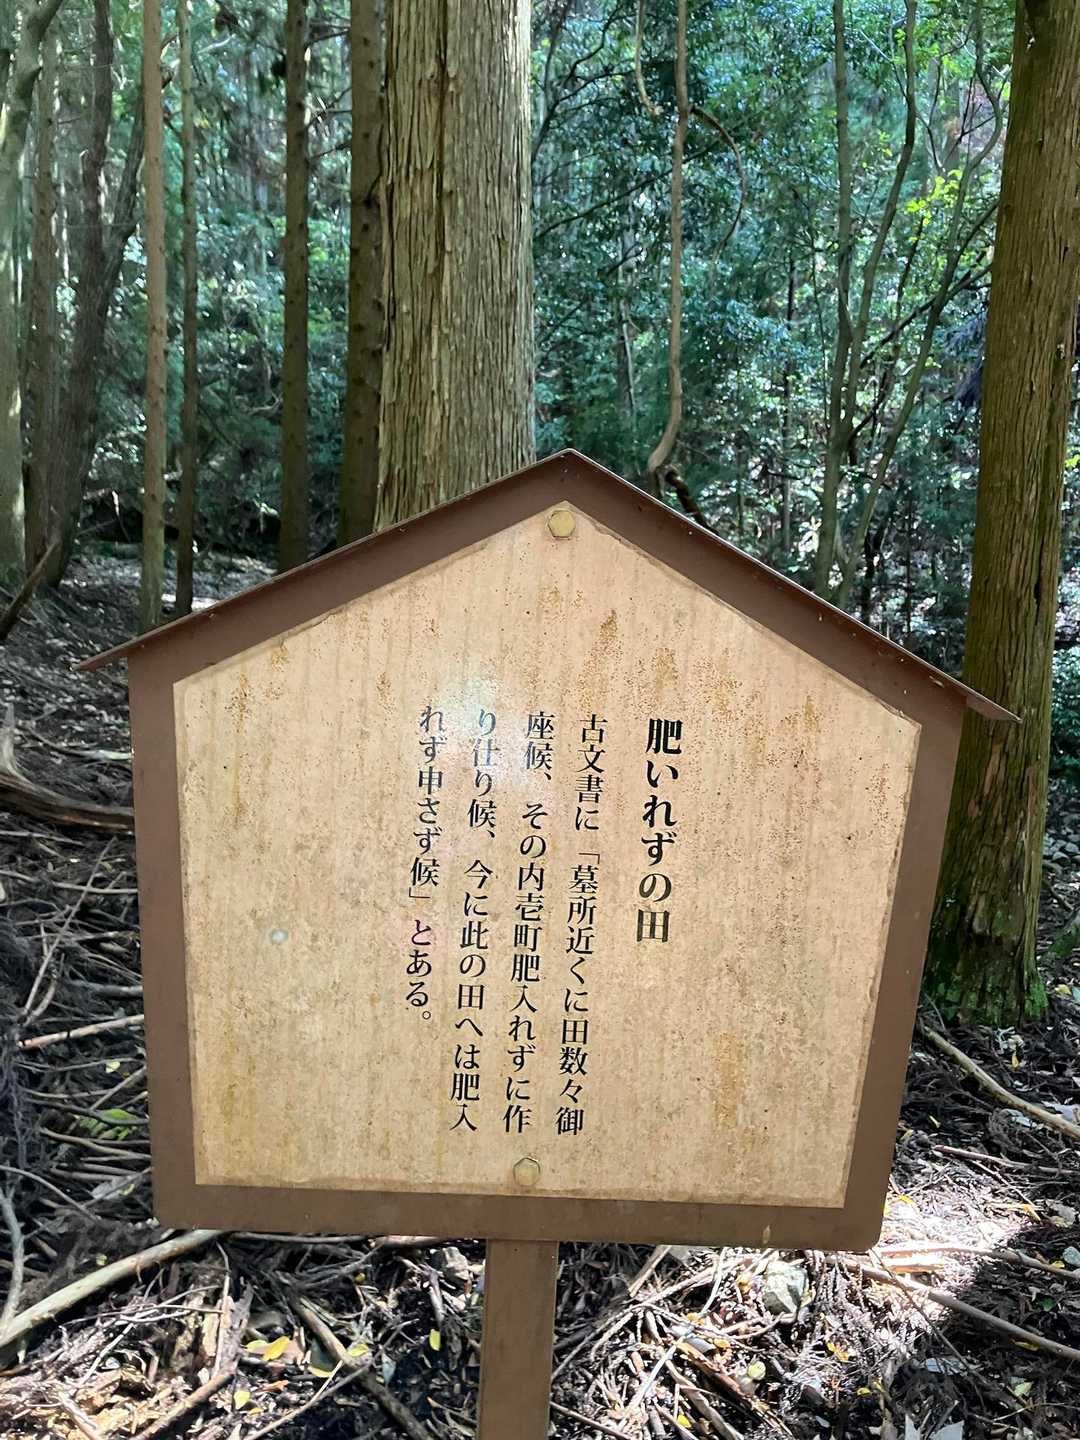 肥いれずの田
古文書に「墓所近くに田数々御
座候、その内壱町肥入れずに作
り仕り候、今に此の田へは肥入
れず申さず候」とある。